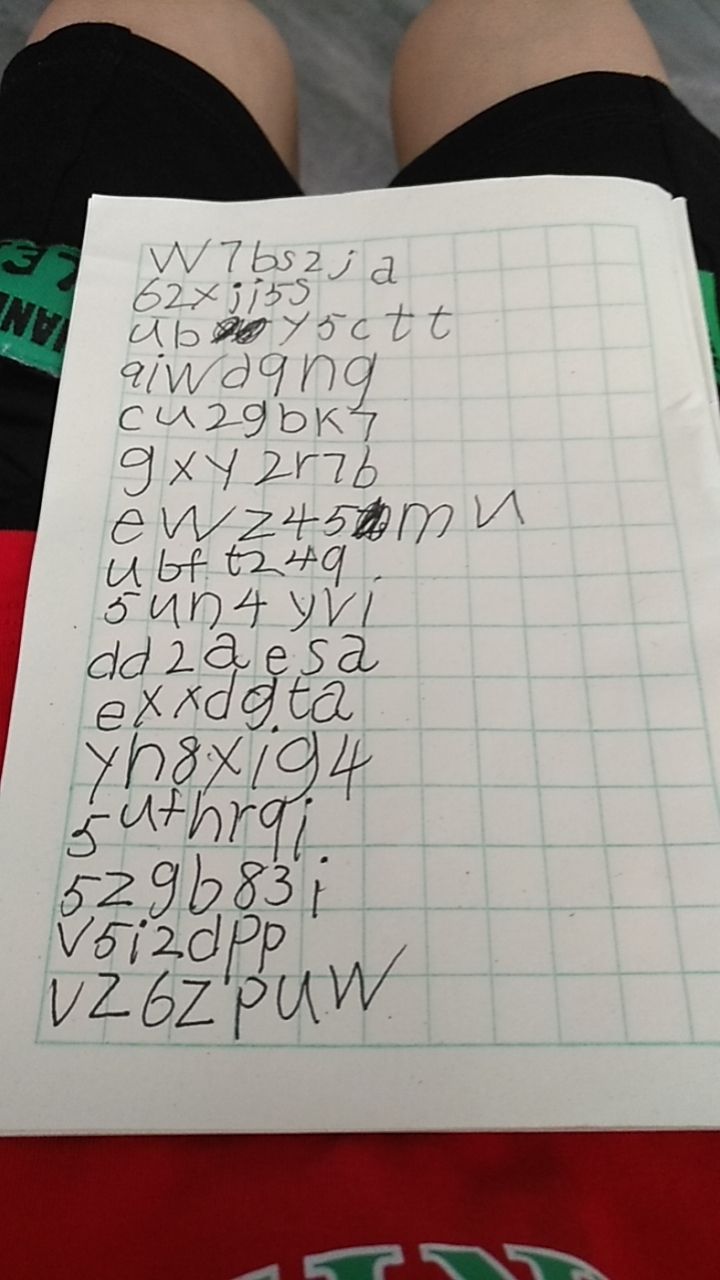 W7bs2ja
62xjj5s
uby5ctt
qiwdqng
cu2gbk7
gxy2r7b
ewz45mu
ubft249
5un4yvi
dd2aesa
exxdgta
yh8xig4
5uthrqi
5zgb83i
v5i2dpp
vz6zpuw